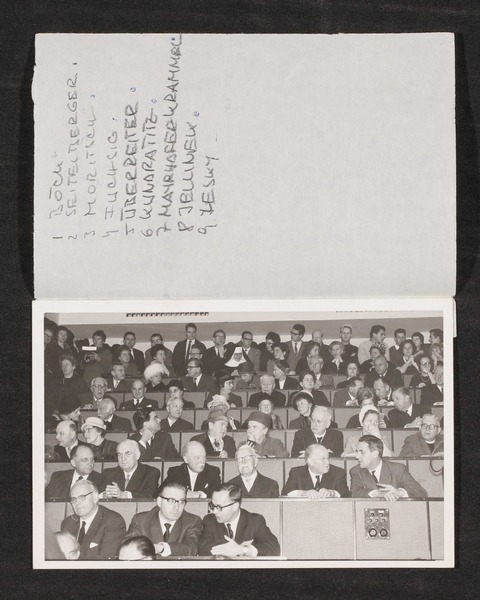 1 BÖCK
2 SEITELBERGER.
3 MORITSCH.
4 FUCHSIG.
5 ÜBERREITER.
6 KUNDRATITZ.
7 MAYRHOFER KRAMMEL
8 JELLINEK.
9 LESKY